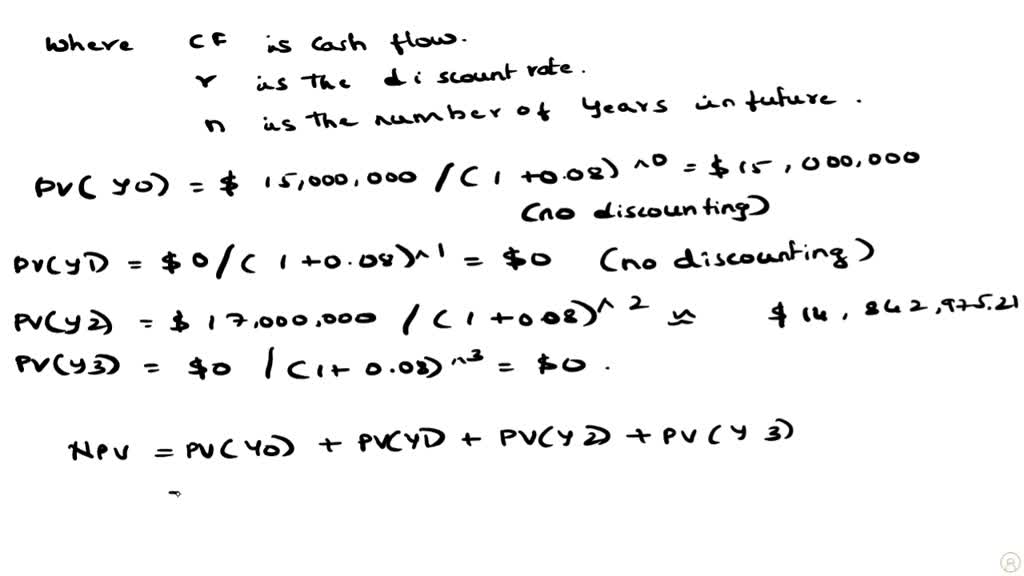 where CF is cash flow.
r is the discount rate.
n is the number of years in future.
PV(Y0) = $ 15,000,000 / (1+0.08)^0 = $15,000,000
(no discounting)
PV(Y1) = $0/(1+0.08)^1 = $0 (no discounting)
PV(Y2) = $ 17,000,000 / (1+0.08)^2 ≈ $14,842,975.21
PV(Y3) = $0 / (1+0.08)^3 = $0.
NPV = PV(Y0) + PV(Y1) + PV(Y2) + PV(Y3)